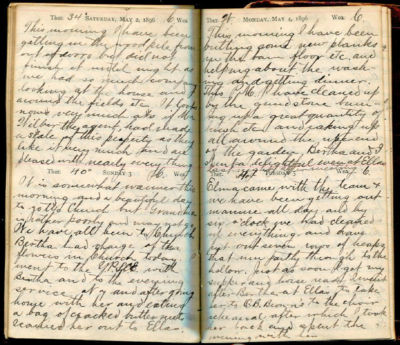 Ther. 34° SATURDAY, MAY 2, 1896 Wea. 6
This morning I have been
getting in the wood pile from
out of doors but did not
finish it
we had so much company
looking at the house and
around the fields etc.
now very much as if
they had made
a sale of this property as they
like it very much and are
pleased with nearly everything
Ther. 40° SUNDAY 3 Wea.
It is somewhat warmer this
morning and a beautiful day
to go to Church but Grandma
is rather poorly and may not go
We have all been to Church
Bertha had charge of the
flowers in Church today
went to the Y.P.S.C.E. with
Bertha and to the evening
service at 7 and after going
home with her and eating
a bag of cracked butternuts
carried her out to Ellas.
Ther. MONDAY, MAY 4, 1896 Wea. 6
This morning I have been
putting some new planks
in the barn floor etc. and
helping about the wash-
ing and getting dinner.
This P.M. I have cleaned up
by the grindstone
ing up a great quantity of
and raking up
all around the upper end
of the garden. Bertha and I
a delightful even at Ellas
Ther. TUESDAY 5 Wea. 6
Elmer came with the team &
we have been getting out
manure all day and by
six o'clock we had cleaned
up everything and have
got out even rows of heaps
that run partly through to the
hollow. Just as soon as I got my
supper my horse ready I went
after Bertha at Ellas to take
her to C.B. Dean's to the choir
rehearsal after which I took
her back and spent the
evening with her